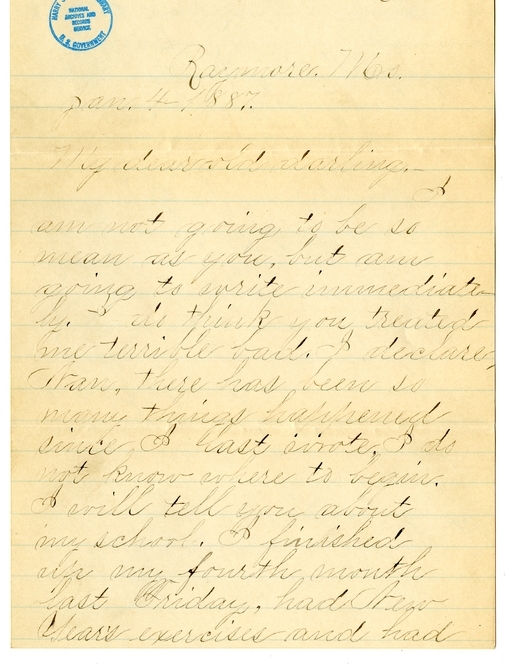 NATIONAL
ARCHIVES AND
RECORDS
SERVICE
U. S. GOVERNMENT
Raymore, Mo.
Jan. 4 - 1887.
My dear old darling,-
I
am not going to be so
mean as you, but am
going to write immediate-
ly. I do think you treated
me terrible bad. I declare,
Nan, there has been so
many things happened
since I last wrote, I do
not know where to begin.
I will tell you about
my school. I finished
up my fourth month
last Friday, had New
Years exercises and had